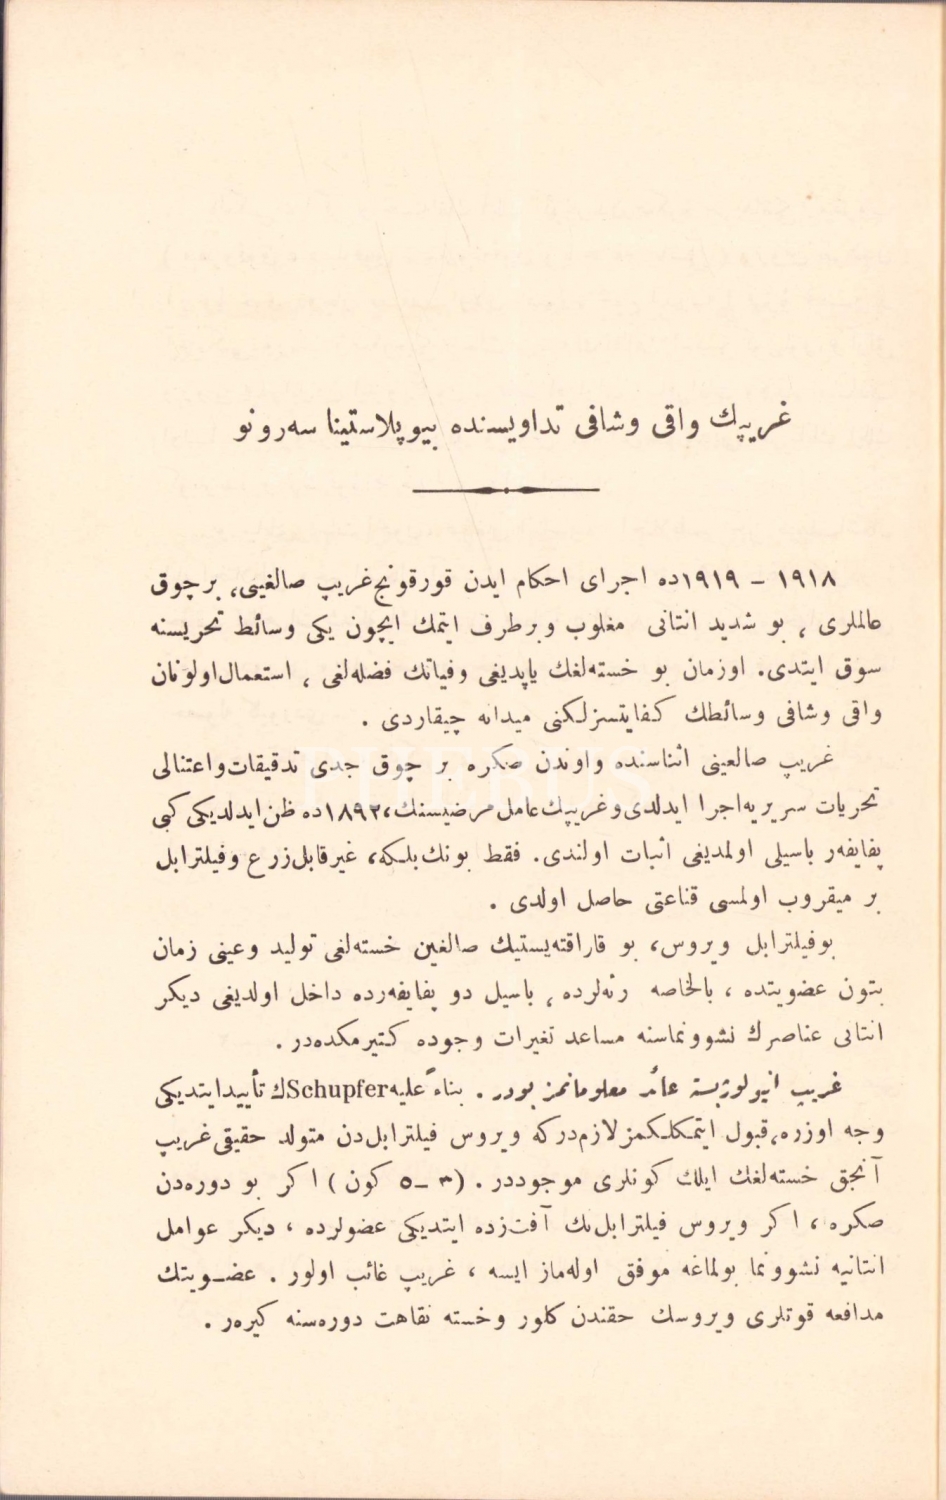 غريپك واقى وشافى تداويسنده بيوپلاستينا سه‌رونو
١٩١٨ – ١٩١٩ده اجراى احكام ايدن قورقونج غريپ صالغينى، برچوق
عالملرى ، بو شديد انتانى مغلوب وبرطرف ايتمك ايچون يكى وسائط تحريسنه
سوق ايتدى. اوزمان بو خسته‌لغك ياپديغى وفياتك فضله‌لغى ، استعمال اولونان
واقى وشافى وسائطك كفايتسزلكنى ميدانه چيقاردى .
غريپ صالعينى اثناسنده واوندن صكره بر چوق جدى تدقيقات واعتنالى
تحريات سريريه اجرا ايدلدى وغريپك عامل مرضيسنك، ١٨٩٢ده ظن ايدلديكى كبى
پفايفه‌ر باسيلى اولمديغى اثبات اولندى. فقط بونك بلكه، غيرقابل زرع وفيلترابل
بر ميقروب اولمسى قناعتى حاصل اولدى .
بوفيلترابل ويروس، بو قاراقته‌يستيك صالغين خسته‌لغى توليد وعينى زمان
بتون عضويتده ، بالخاصه رئه‌لرده ، باسيل دو پفايفه‌رده داخل اولديغى ديكر
انتانى عناصرك نشوونماسنه مساعد تغيرات وجوده كتيرمكده‌در .
غريپ اتيولوژيسنه عائد معلوماتمز بودر . بناءً عليه Schupferك تأييد ايتديكى
وجه اوزره، قبول ايتمكلكمز لازم‌دركه ويروس فيلترابل‌دن متولد حقيقى غريپ
آنجق خسته‌لغك ايلك كونلرى موجوددر . (٣ – ٥ كون) اكر بو دوره‌دن
صكره ، اكر ويروس فيلترابل‌ك آفت‌زده ايتديكى عضولرده ، ديكر عوامل
انتانيه نشوونما بولماغه موفق اوله‌ماز ايسه ، غريپ غائب اولور . عضويتك
مدافعه قوتلرى ويروسك حقندن كلور وخسته نقاهت دوره‌سنه كيره‌ر .
PHEBUS